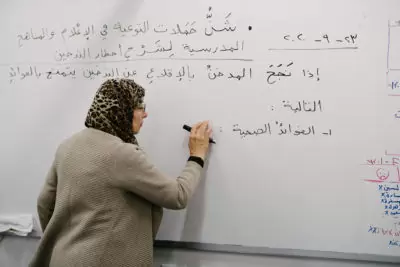 ٢٣-٩-٢٠٢٠
• شَنُّ حَمَلات التوعية في الإعلام والمناهج
المدرسية لِشَرْحِ أخطار التدخين
إذا نَجَحَ المدخنُ بالإقلاع عن التدخين يتمتع بالفوائد
التالية :
١- الفوائدُ الصحية :